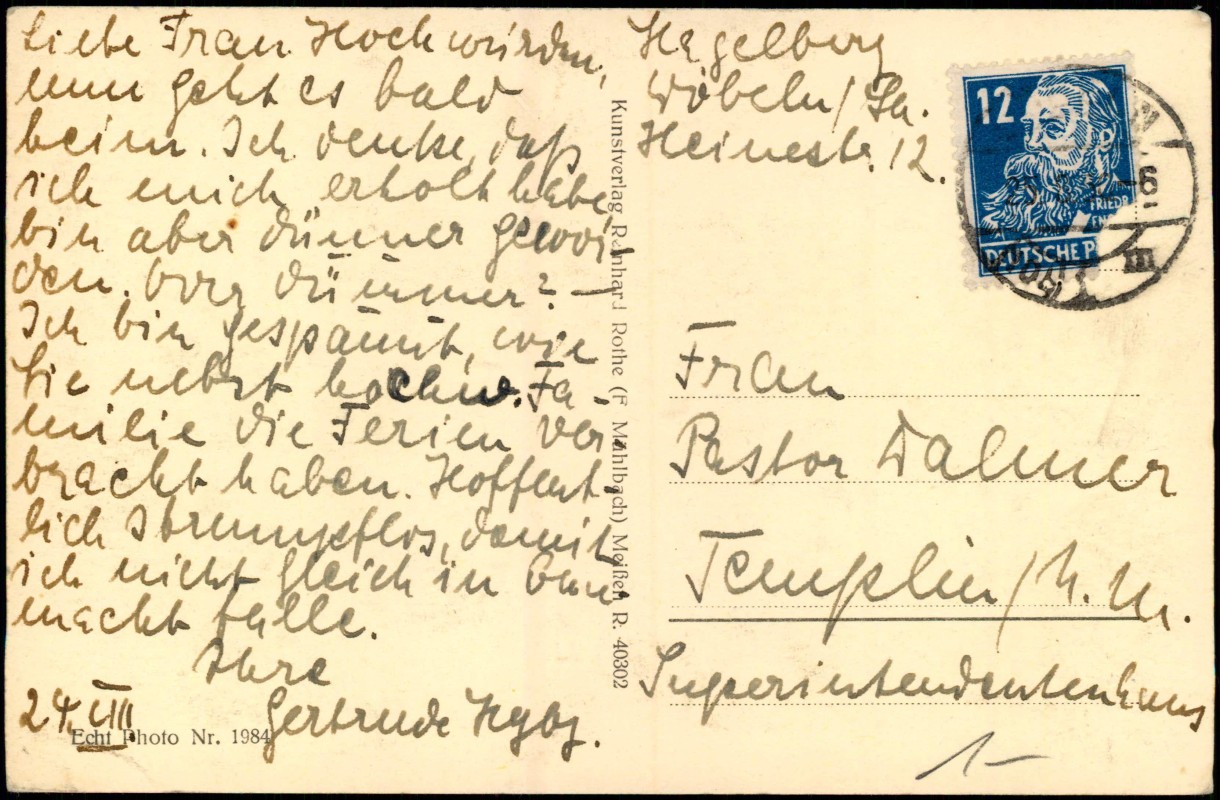 Liebe Frau Hochwürden,
nun geht es bald
heim. Ich denke, daß
ich mich erholt habe,
bin aber dünner gewor
den. Oder dümmer? –
Ich bin gespannt, wie
Sie nebst hochw. Fa-
milie die Ferien ver
bracht haben. Hoffent-
lich strumpflos, damit
ich nicht gleich in Ohn
macht falle.
Ihre
Gertrude
24. VIII
Echt Photo Nr. 1984
Kunstverlag Reinhard Rothe (F. Mühlbach) Meißen R. 40302
Hagelberg
Döbeln/Sa.
Heinestr. 12.
12
FRIEDR
DEUTSCHE P
Frau
Pastor Dalmer
Templin/U. M.
Superintendentenhaus